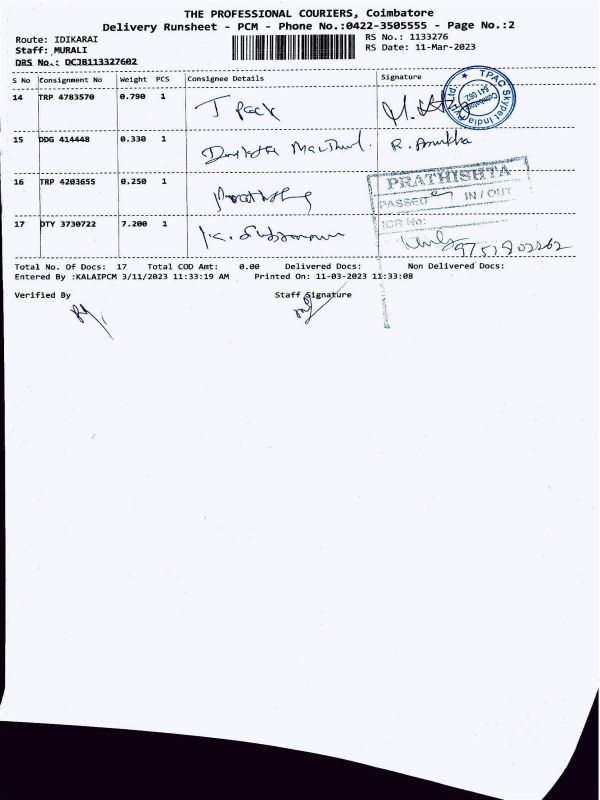 THE PROFESSIONAL COURIERS, Coimbatore
Delivery Runsheet - PCM - Phone No.:0422-3505555 - Page No.:2
Route: IDIKARAI
RS No.: 1133276
Staff: MURALI
RS Date: 11-Mar-2023
DRS No.: DCJB113327602
S No Consignment No Weight PCS Consignee Details Signature
14 TRP 4783570 0.790 1 T Pack
TPAC Skypet India Pvt Ltd. Coimbatore 641 062
15 DDG 414448 0.330 1 R. Anukha
16 TRP 4203655 0.250 1
PRATHISHTA
PASSED IN / OUT
ICR No:
17 DTY 3730722 7.200 1
Total No. Of Docs: 17 Total COD Amt: 0.00 Delivered Docs: Non Delivered Docs:
Entered By :KALAIPCM 3/11/2023 11:33:19 AM Printed On: 11-03-2023 11:33:08
Verified By Staff Signature